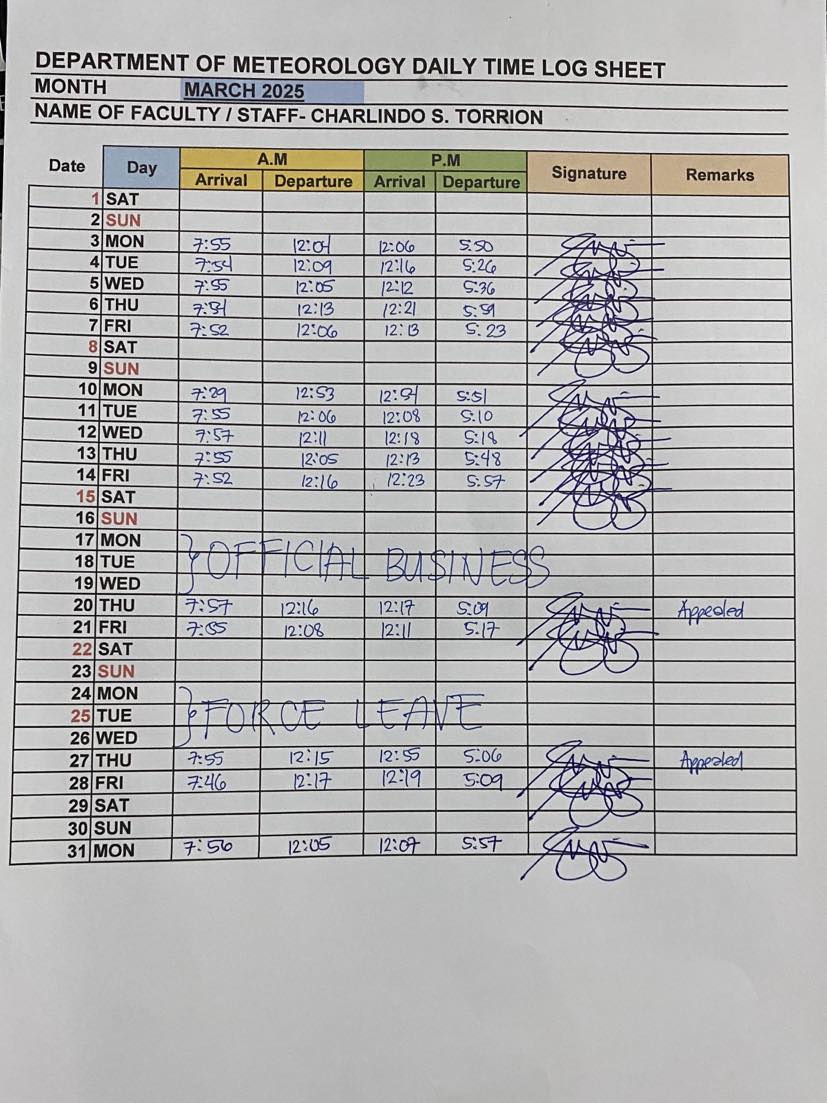 DEPARTMENT OF METEOROLOGY DAILY TIME LOG SHEET
MONTH MARCH 2025
NAME OF FACULTY / STAFF- CHARLINDO S. TORRION
Date Day A.M P.M Signature Remarks
Arrival Departure Arrival Departure
1 SAT
2 SUN
3 MON 7:55 12:01 12:06 5:50
4 TUE 7:54 12:09 12:16 5:26
5 WED 7:55 12:05 12:12 5:36
6 THU 12:13 12:21
7 FRI 7:52 12:06 12:13 5:23
8 SAT
9 SUN
10 MON 7:29 12:53 5:51
11 TUE 7:55 12:06 12:08 5:10
12 WED 7:57 12:11 12:18 5:18
13 THU 7:55 12:05 12:13 5:48
14 FRI 7:52 12:16 12:23 5:57
15 SAT
16 SUN
17 MON
18 TUE } OFFICIAL BUSINESS
19 WED
20 THU 7:57 12:16 12:17 5:09 Appealed
21 FRI 12:08 12:11 5:17
22 SAT
23 SUN
24 MON
25 TUE } FORCE LEAVE
26 WED
27 THU 7:55 12:15 12:55 5:06 Appealed
28 FRI 7:46 12:17 12:19 5:09
29 SAT
30 SUN
31 MON 7:56 12:05 12:07 5:57